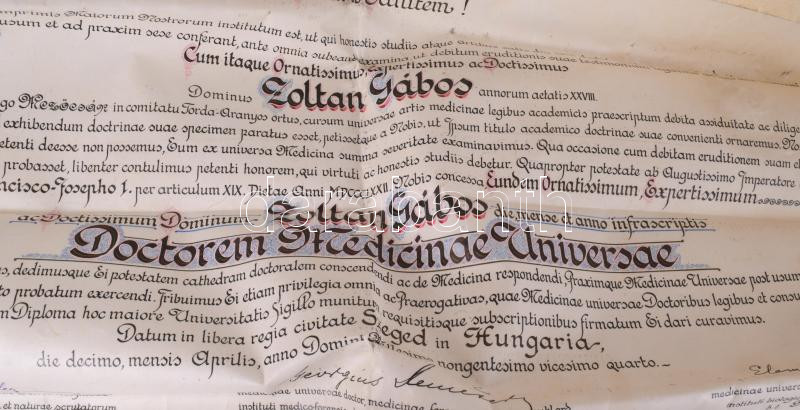 Salutem!
imprimis Maiorum Nostrorum institutum est, ut qui honestis studiis atque
usum et ad praxim sese conferant, ante omnia subeant examina, ut debitum eruditionis suae
Cum itaque Ornatissimus, Expertissimus ac Doctissimus
Dominus Zoltan Gábos annorum aetatis XXVIII.
Mezőcsán in comitatu Torda-Aranyos ortus, cursum universae artis medicinae legibus academicis praescriptum debita assiduitate ac
exhibendum doctrinae suae specimen paratus esset, petissetque a Nobis, ut Ipsum titulo academico doctrinae suae convenienti ornaremus.
petenti deesse non possemus, Eum ex universa Medicina summa severitate examinavimus. Qua occasione cum debitam eruditionem suam
probasset, libenter contulimus petenti honorem, qui virtuti ac honestis studiis debetur. Quapropter potestate ab Augustissimo Imperatore
Francisco-Josepho I. per articulum XIX. Dietae Anni MDCCCLXXII. Nobis concessa, Eundem Ornatissimum, Expertissimum
ac Doctissimum Dominum Zoltan Gábos die mense et anno infrascriptis
Doctorem Medicinae Universae
dedimusque Ei potestatem cathedram doctoralem conscendendi ac de Medicina respondendi, Praximque Medicinae Universae post usum
probatum exercendi. Tribuimus Ei etiam privilegia omnia ac Praerogativas, quae Medicinae universae Doctoribus legibus et
Diploma hoc maiore Universitatis Sigillo munitum requisitisque subscriptionibus firmatum Ei dari curavimus.
Datum in libera regia civitate Szeged in Hungaria,
die decimo, mensis Aprilis, anno Domini nongentesimo vicesimo quarto.
Georgius
medicinae universae doctor, medicinae
medicinae univer
et naturae scrutatorum
instituti medicoforensis
instituti
darabanth